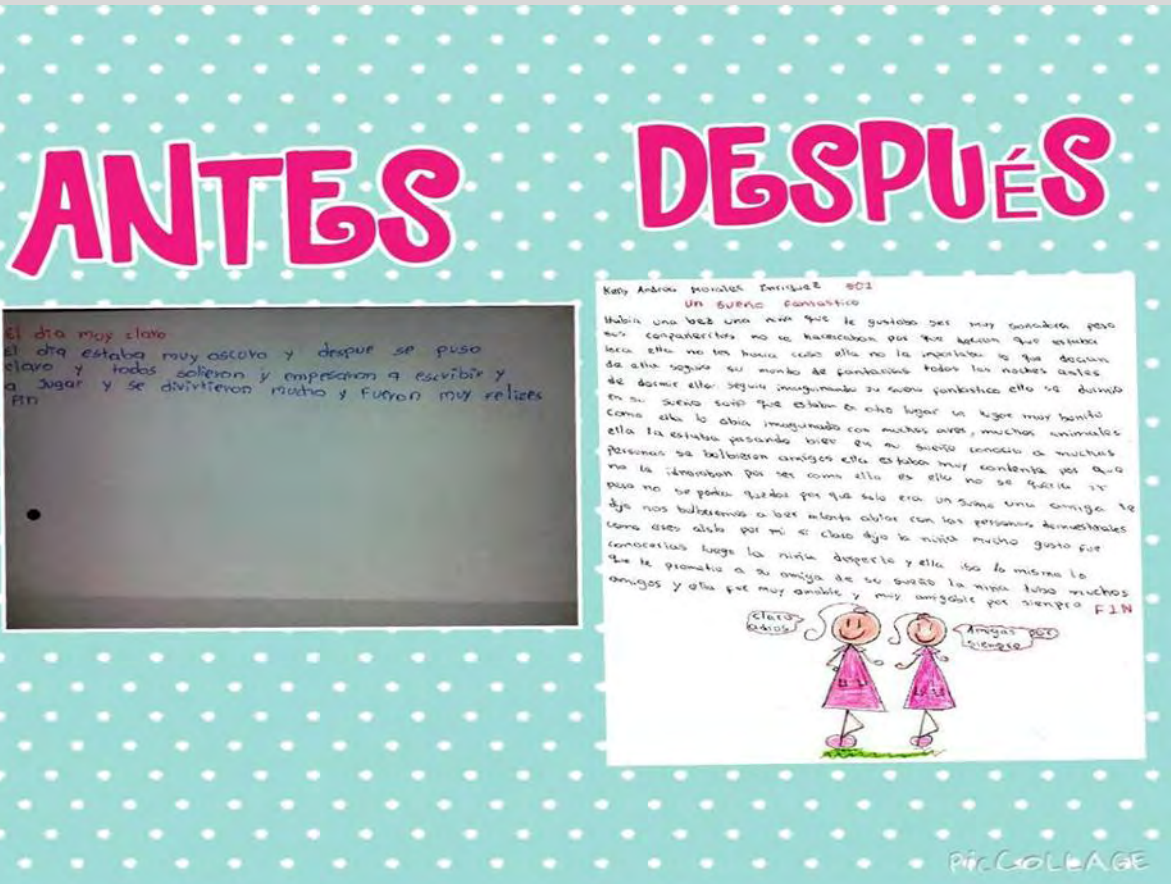 ANTES
DESPUÉS
El dia muy claro
El dia estaba muy oscuro y despue se puso
claro y todos solieron y empesaron a escribir y
a Jugar y se divirtieron mucho y Fueron muy felizes
Fin
Kelly Andrea Morales Enriquez 501
Un sueño fantastico
Habia una bez una niña que le gustaba ser muy soñadora pero
sus conpañeritos no se hacercaban por que decian que estaba
loca ella no les hacia caso ella no le importaba lo que decian
de ella seguia su mundo de fantasias todas las noches antes
de dormir ella seguia imaginando su sueño fantastico ella se durmio
en su sueño soño que estaba en otro lugar un lugar muy bonito
como ella lo abia imaginado con muchas aves, muchos animales
ella la estaba pasando bien en su sueño conocio a muchas
personas se bolbieron amigos ella estaba muy contenta por que
no la idnoraban por ser como ella es ella no se queria ir
pero no se podia quedar por que solo era un sueño una amiga le
dijo nos bolberemos a ber ablar con las personas
como eres aslo por mi si claro dijo la niña mucho gusto fue
conocerlas luego la niña desperto y ella iso lo mismo lo
que le prometio a su amiga de su sueño la niña tubo muchos
amigos y ella fue muy amable y muy amigable por sienpre FIN
claro
adios
Amigas por
sienpre
PicCOLLAGE